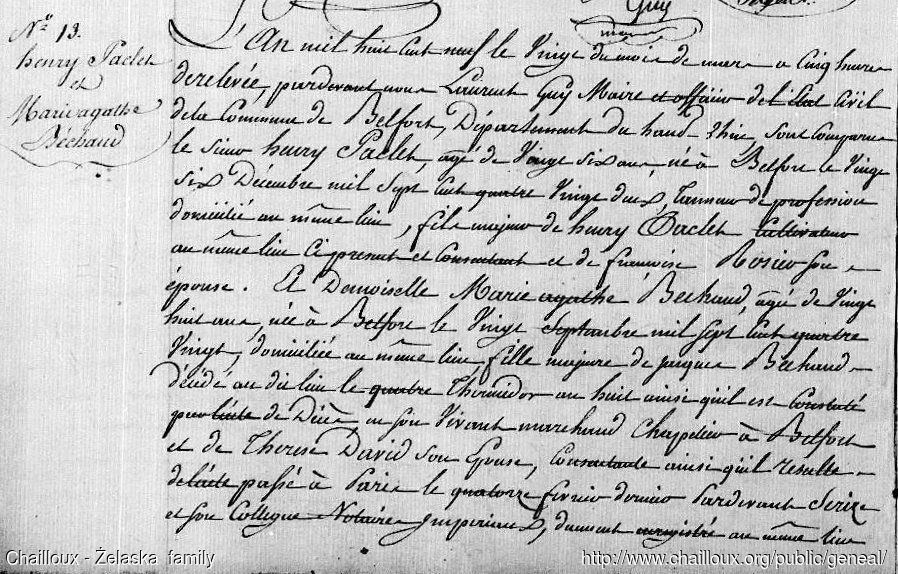 Guy
maire
N.º 13.
henry Paclet
et
Marie agathe
Béchaud
L'An mil huit cent neuf le Vingt du mois de mars a Cinq heures
de relevée, pardevant nous Laurent Guy Maire et officier de l'État Civil
de la Commune de Belfort, Département du haut-Rhin, sont Comparus
le sieur henry Paclet, âgé de Vingt six ans, né à Belfort le Vingt
six Décembre mil sept cent quatre Vingt deux, Tanneur de profession
domicilié au même lieu, fils majeur de henry Paclet Cultivateur
au même lieu Ci present et Consentant et de françoise Rosier son
épouse. Et Demoiselle Marie agathe Bechaud, âgée de Vingt
huit ans, née à Belfort le Vingt Septembre mil sept cent quatre
Vingt, domiciliée au même lieu, fille majeure de jacques Bechaud
décédé au dit lieu le quatre Thermidor an huit ainsi qu'il est Constaté
par l'acte de Décès, en son Vivant marchand Chapelier à Belfort
et de Therese David son Epouse, Consentante ainsi qu'il resulte
de l'acte passé à Paris le quatorze fevrier dernier Pardevant Serize
et son Collegue Notaires Imperiaux, dument enregistré au même lieu
Chailloux - Żelaska family
http://www.chailloux.org/public/geneal/